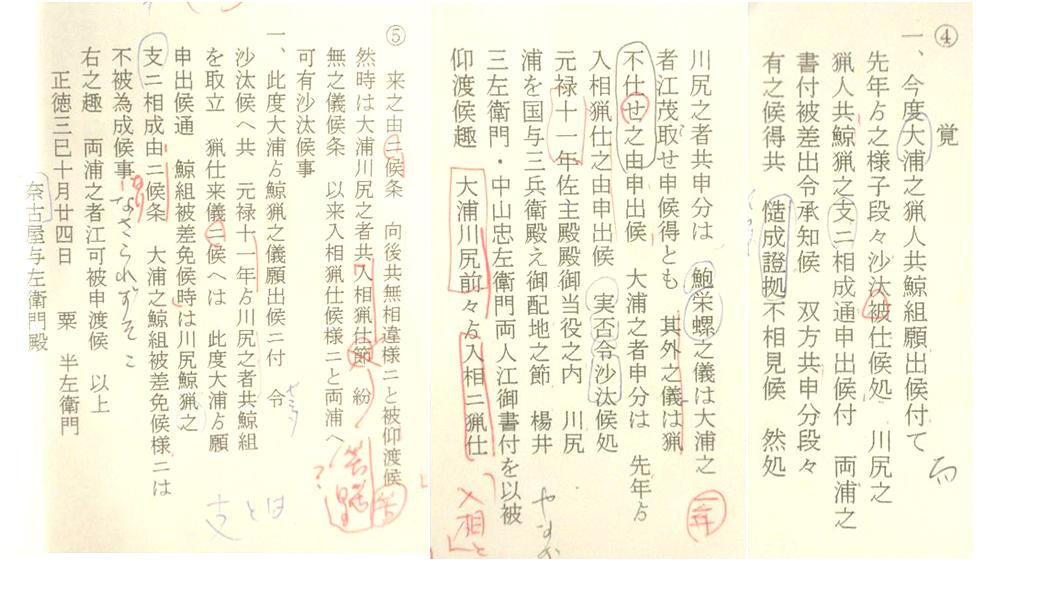 ④
覚
一、今度大浦之猟人共鯨組願出候付て
先年ゟ之様子段々沙汰被仕候処 川尻之
猟人共鯨猟之支ニ相成通申出候付 両浦之
書付被差出令承知候 双方共申分段々
有之候得共 慥成證拠不相見候 然処
川尻之者共申分は 鮑栄螺之儀は大浦之
者江茂取せ申候得とも 其外之儀は猟
不仕せ之由申出候 大浦之者申分は 先年ゟ
入相猟仕之由申出候 実否令沙汰候処
元禄十一年佐主殿殿御当役之内 川尻
浦を国与三兵衛殿え御配地之節 楊井
三左衛門・中山忠左衛門両人江御書付を以被
仰渡候趣 大浦川尻前々ゟ入相ニ猟仕
⑤
来之由ニ候条 向後共無相違様ニと被仰渡候
然時は大浦川尻之者共入相猟仕節 紛
無之儀候条 以来入相猟仕候様ニと両浦へ
可有沙汰候事
一、此度大浦ゟ鯨猟之儀願出候ニ付 令
沙汰候へ共 元禄十一年ゟ川尻之者共鯨組
を取立 猟仕来儀ニ候へは 此度大浦ゟ願
申出候通 鯨組被差免候時は川尻鯨猟之
支ニ相成由ニ候条 大浦之鯨組被差免候様ニは
不被為成候事
右之趣 両浦之者江可被申渡候 以上
正徳三巳十月廿四日 粟 半左衛門
奈古屋与左衛門殿
入相と
支とは
なさられずそこ